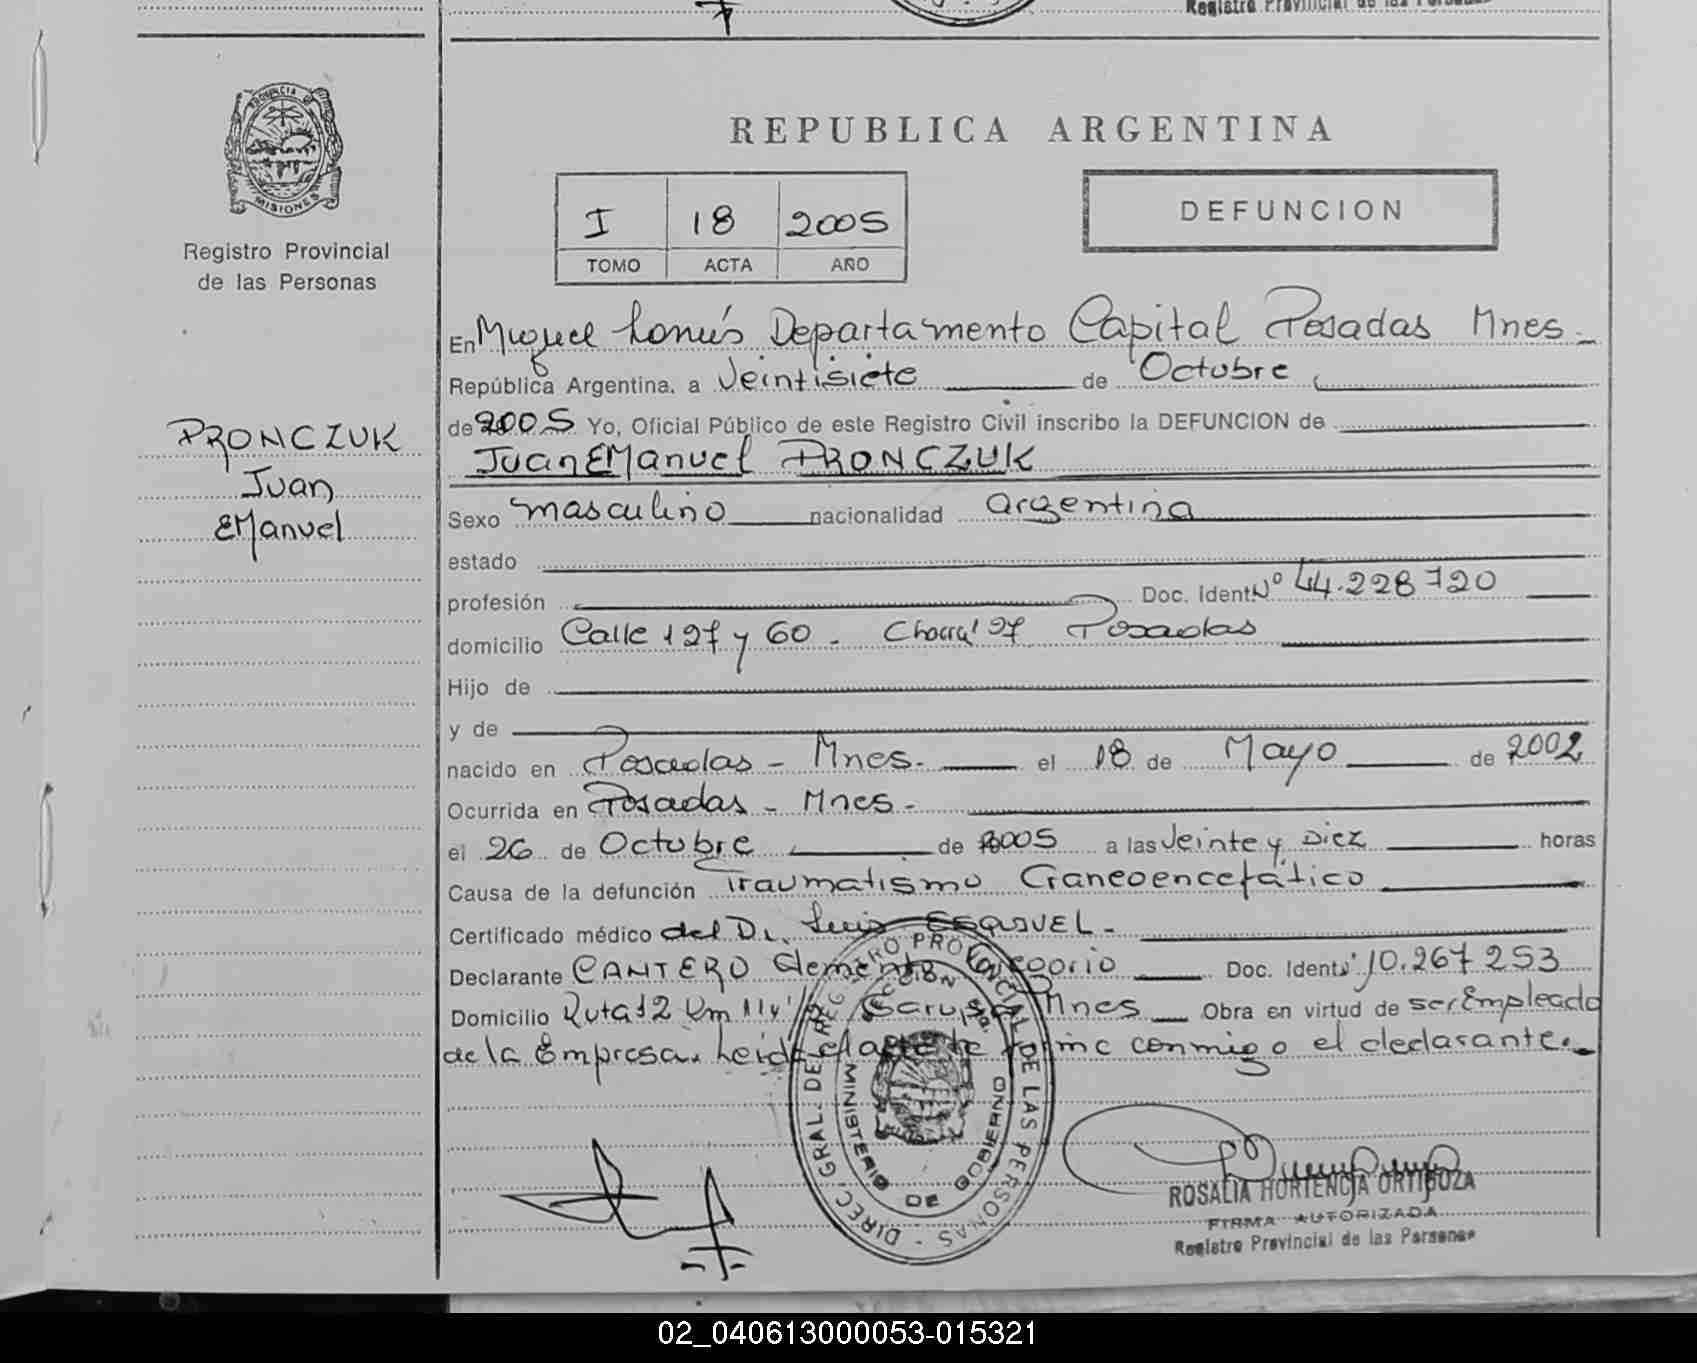 Registro Provincial de las Personas
PROVINCIA DE
MISIONES
Registro Provincial
de las Personas
PRONCZUK
Juan
EManuel
REPUBLICA ARGENTINA
I 18 2005
TOMO ACTA AÑO
DEFUNCION
En Miguel Lanús Departamento Capital Posadas Mnes.
República Argentina, a Veintisiete de Octubre
de 2005 Yo, Oficial Público de este Registro Civil inscribo la DEFUNCION de
Juan EManuel PRONCZUK
Sexo masculino nacionalidad argentina
estado
profesión Doc. Ident. Nº 44.228720
domicilio Calle 127 y 60 - Chacra' 97 Posadas
Hijo de
y de
nacido en Posadas - Mnes. el 18 de Mayo de 2002
Ocurrida en Posadas - Mnes.
el 26 de Octubre de 2005 a las Veinte y Diez horas
Causa de la defunción Traumatismo Craneoencefático
Certificado médico del Dr. Luis ESQUVEL.
Declarante CANTERO Clemente Gregorio Doc. Ident. 10.267253
Domicilio Ruta 12 Km 11 y Garupá Mnes Obra en virtud de ser Empleado
de la Empresa. Leida el acta la firma conmigo el declarante.
DIREC. GRAL. DEL REGISTRO PROVINCIAL DE LAS PERSONAS
MINISTERIO DE GOBIERNO
ROSALIA HORTENCIA ORTIGOZA
FIRMA AUTORIZADA
Registro Provincial de las Personas
02_040613000053-015321